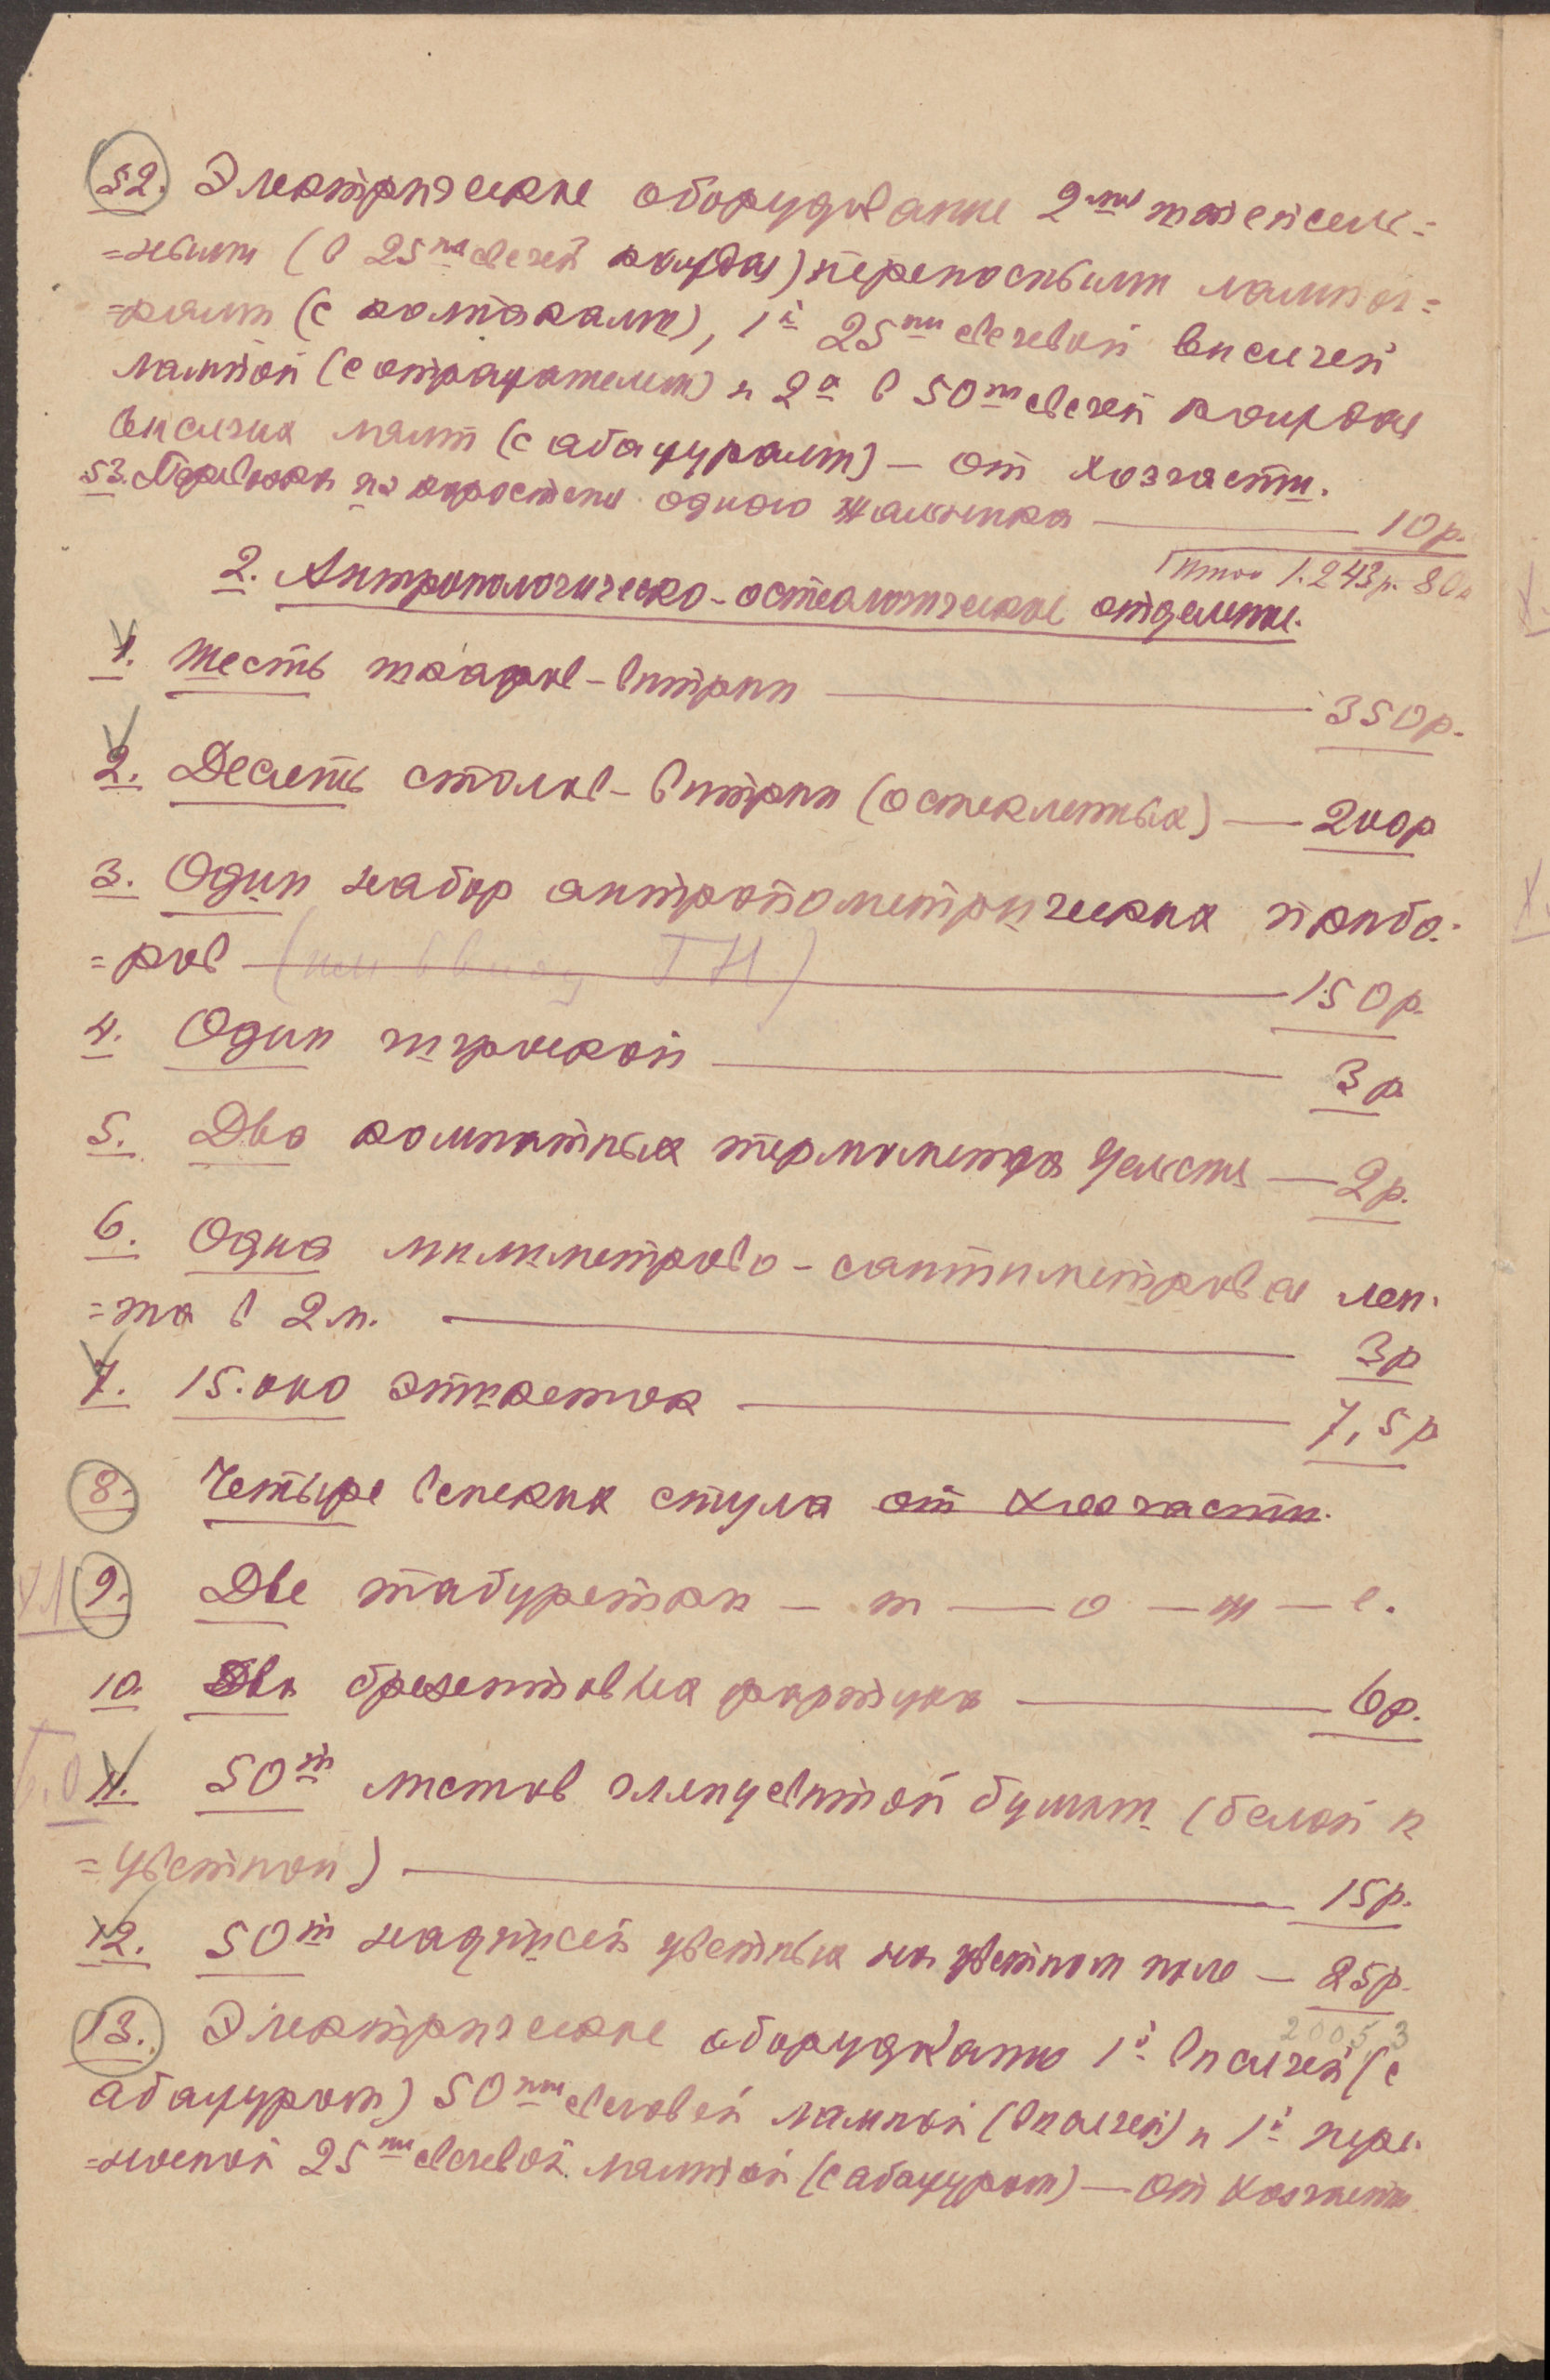 52. Электрическое оборудование 2мя штепсель=
=ными (в 25ть свечей каждая) переносными лампоч=
=ками (с колпаками), 1й 25ти свечевой висячей
лампой (с отражателем) и 2я в 50т свечей каждая
висячих ламп (с абажурами) — от хозчасти.
53. Перевозки из одного 10р.
Итого 1.243р. 80к
2. Антропологическо-остеологическое отделение.
1. Шесть шкафов-витрин 350р.
2. Десять столов-витрин (остекленных) — 200р
3. Один набор антропометрических прибо-
=ров 150р.
4. Один 3р
5. Два комнатных термометра Цельсия — 2р.
6. Одна миллиметрово-сантиметровая лен-
=та в 2 м. 3р
7. 15.000 этикеток 7,5р
8. Четыре венских стула от хозчасти.
9. Две табуретки — т — о — ж — е.
10. Два брезентовых фартука 6р.
11. 50т листов бумаги (белой и
=цветной) 15р.
12. 50т надписей цветных на цветном поле — 25р.
2005,3
13. Электрическое оборудование 1й висячей (с
абажуром) 50ти свечевой лампой (висячей) и 1й пере-
=носной 25ти свечевой лампой (с абажуром) — От Хозчасти